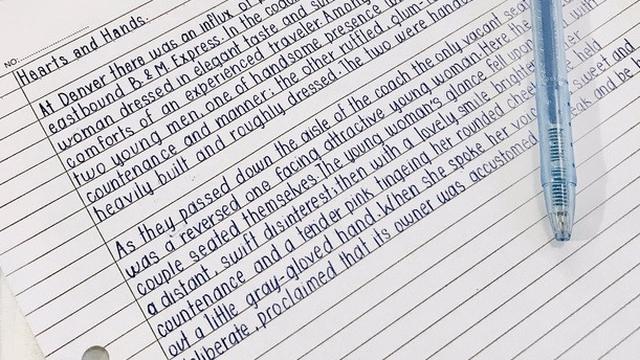 NO.
Hearts and Hands:
At Denver there was an influx of
eastbound B. & M Express. In the coach
woman dressed in elegant taste and
comforts of an experienced traveler. Among
two young men, one of handsome presence
countenance and manner; the other ruffled, glum-
heavily built and roughly dressed. The two were
As they passed down the aisle of the coach the only vacant seat
was a reversed one facing attractive young woman. Here the
couple seated themselves. The young woman's glance fell upon with
a distant, swift disinterest; then with a lovely smile
countenance and a tender pink tingeing her rounded held
out a little gray-gloved hand. When she spoke her sweet and
deliberate, proclaimed that its owner was accustomed and be